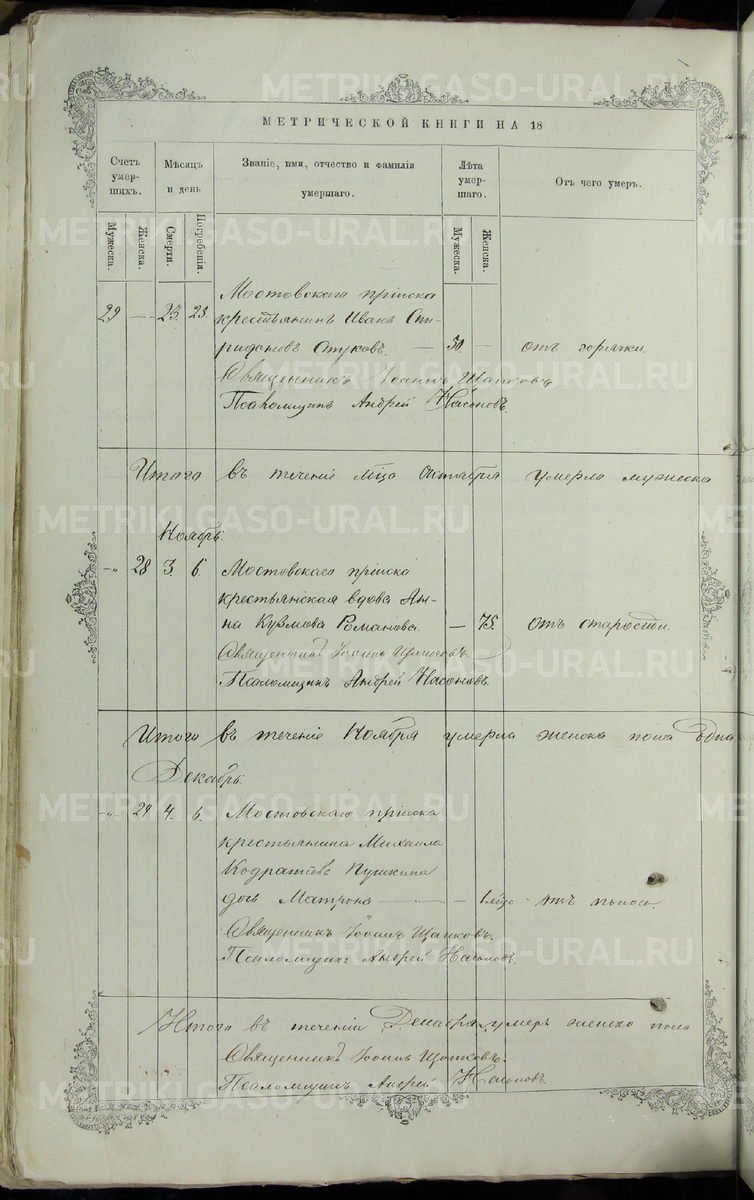 METRIKI.GASO-URAL.RU
МЕТРИЧЕСКОЙ КНИГИ НА 18
Счетъ умер-шихъ.
Мѣсяцъ и день
Званіе, имя, отчество и фамилія умершаго.
Лѣта умер-шаго.
Отъ чего умеръ.
Мужеска.
Женска.
Смерти.
Погребенія.
Мужеска.
Женска.
Мостовскаго пріиска
29 23. 25. крестьянинъ Иванъ Спи-
ридоновъ 50. отъ горячки.
Священникъ Іоаннъ
Псаломщикъ Андрей Насоновъ.
Итого въ теченіе мца Октября умерло мужеска
Ноябрь.
28 3. 6. Мостовскаго пріиска
крестьянская вдова Ан-
на Кузмова Романова. — 75. отъ старости.
Священникъ Іоаннъ
Псаломщикъ Андрей Насоновъ.
Итого въ теченіе Ноября умерла женска пола одна
Декабрь.
29 4. 6. Мостовскаго пріиска
крестьянина Михаила
Пушкина
дочь Матрона — 1 мца отъ поноса.
Священникъ Іоаннъ
Псаломщикъ Андрей Насоновъ.
Итого въ теченіи Декабря умерло женска пола
Священникъ Іоаннъ
Псаломщикъ Андрей Насоновъ.